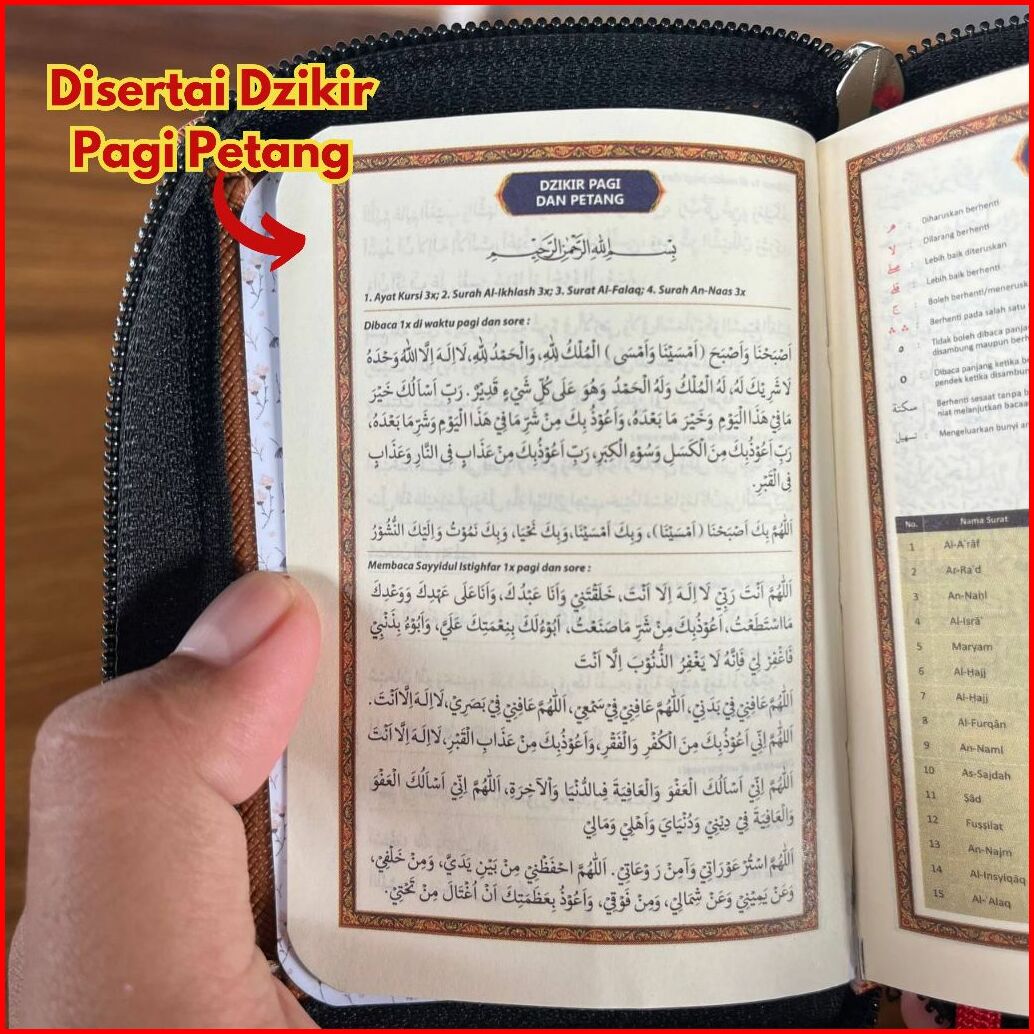 Disertai Dzikir
Pagi Petang
DZIKIR PAGI
DAN PETANG
بِسْمِ اللهِ الرَّحْمٰنِ الرَّحِيْمِ
1. Ayat Kursi 3x; 2. Surah Al-Ikhlash 3x; 3. Surat Al-Falaq; 4. Surah An-Naas 3x
Dibaca 1x di waktu pagi dan sore :
اَصْبَحْنَا وَاَصْبَحَ ( اَمْسَيْنَا وَاَمْسَى ) الْمُلْكُ لِلّٰهِ، وَالْحَمْدُ لِلّٰهِ، لَا اِلٰهَ اِلَّا اللهُ وَحْدَهُ
لَا شَرِيْكَ لَهُ، لَهُ الْمُلْكُ وَلَهُ الْحَمْدُ وَهُوَ عَلَى كُلِّ شَيْءٍ قَدِيْرٌ. رَبِّ اَسْأَلُكَ خَيْرَ
مَا فِيْ هَذَا الْيَوْمِ وَخَيْرَ مَا بَعْدَهُ، وَاَعُوْذُ بِكَ مِنْ شَرِّ مَا فِيْ هَذَا الْيَوْمِ وَشَرِّ مَا بَعْدَهُ،
رَبِّ اَعُوْذُبِكَ مِنَ الْكَسَلِ وَسُوْءِ الْكِبَرِ، رَبِّ اَعُوْذُبِكَ مِنْ عَذَابٍ فِى النَّارِ وَعَذَابٍ
فِى الْقَبْرِ.
اَللّٰهُمَّ بِكَ اَصْبَحْنَا ( اَمْسَيْنَا )، وَبِكَ اَمْسَيْنَا، وَبِكَ نَحْيَا، وَبِكَ نَمُوْتُ وَاِلَيْكَ النُّشُوْرُ
Membaca Sayyidul Istighfar 1x pagi dan sore :
اَللّٰهُمَّ اَنْتَ رَبِّيْ لَا اِلٰهَ اِلَّا اَنْتَ، خَلَقْتَنِيْ وَاَنَا عَبْدُكَ، وَاَنَا عَلَى عَهْدِكَ وَوَعْدِكَ
مَا اسْتَطَعْتُ، اَعُوْذُبِكَ مِنْ شَرِّ مَا صَنَعْتُ، اَبُوْءُ لَكَ بِنِعْمَتِكَ عَلَيَّ، وَاَبُوْءُ بِذَنْبِيْ
فَاغْفِرْ لِيْ فَاِنَّهُ لَا يَغْفِرُ الذُّنُوْبَ اِلَّا اَنْتَ
اَللّٰهُمَّ عَافِنِيْ فِيْ بَدَنِيْ، اَللّٰهُمَّ عَافِنِيْ فِيْ سَمْعِيْ، اَللّٰهُمَّ عَافِنِيْ فِيْ بَصَرِيْ، لَا اِلٰهَ اِلَّا اَنْتَ.
اَللّٰهُمَّ اِنِّيْ اَعُوْذُبِكَ مِنَ الْكُفْرِ وَالْفَقْرِ، وَاَعُوْذُبِكَ مِنْ عَذَابِ الْقَبْرِ، لَا اِلٰهَ اِلَّا اَنْتَ
اَللّٰهُمَّ اِنِّيْ اَسْأَلُكَ الْعَفْوَ وَالْعَافِيَةَ فِىالدُّنْيَا وَالْآخِرَةِ، اَللّٰهُمَّ اِنِّيْ اَسْأَلُكَ الْعَفْوَ
وَالْعَافِيَةَ فِيْ دِيْنِيْ وَدُنْيَايَ وَاَهْلِيْ وَمَالِيْ
اَللّٰهُمَّ اسْتُرْ عَوْرَاتِيْ وَآمِنْ رَوْعَاتِيْ. اَللّٰهُمَّ احْفَظْنِيْ مِنْ بَيْنِ يَدَيَّ، وَمِنْ خَلْفِيْ،
وَعَنْ يَمِيْنِيْ وَعَنْ شِمَالِيْ، وَمِنْ فَوْقِيْ، وَاَعُوْذُ بِعَظَمَتِكَ اَنْ اُغْتَالَ مِنْ تَحْتِيْ.
م : Diharuskan berhenti
لا : Dilarang berhenti
صلى : Lebih baik diteruskan
قلى : Lebih baik berhenti
ج : Boleh berhenti/menerusk
∴ ∴ : Berhenti pada salah satu
Tidak boleh dibaca panjan
disambung maupun berh
Dibaca panjang ketika be
pendek ketika disambun
سكتة : Berhenti sesaat tanpa b
niat melanjutkan bacaa
تسهيل : Mengeluarkan bunyi an
No. Nama Surat
1 Al-A'râf
2 Ar-Ra'd
3 An-Naḥl
4 Al-Isrâ'
5 Maryam
6 Al-Ḥajj
7 Al-Ḥajj
8 Al-Furqân
9 An-Naml
10 As-Sajdah
11 Ṣâd
12 Fuṣṣilat
13 An-Najm
14 Al-Insyiqâq
15 Al-'Alaq